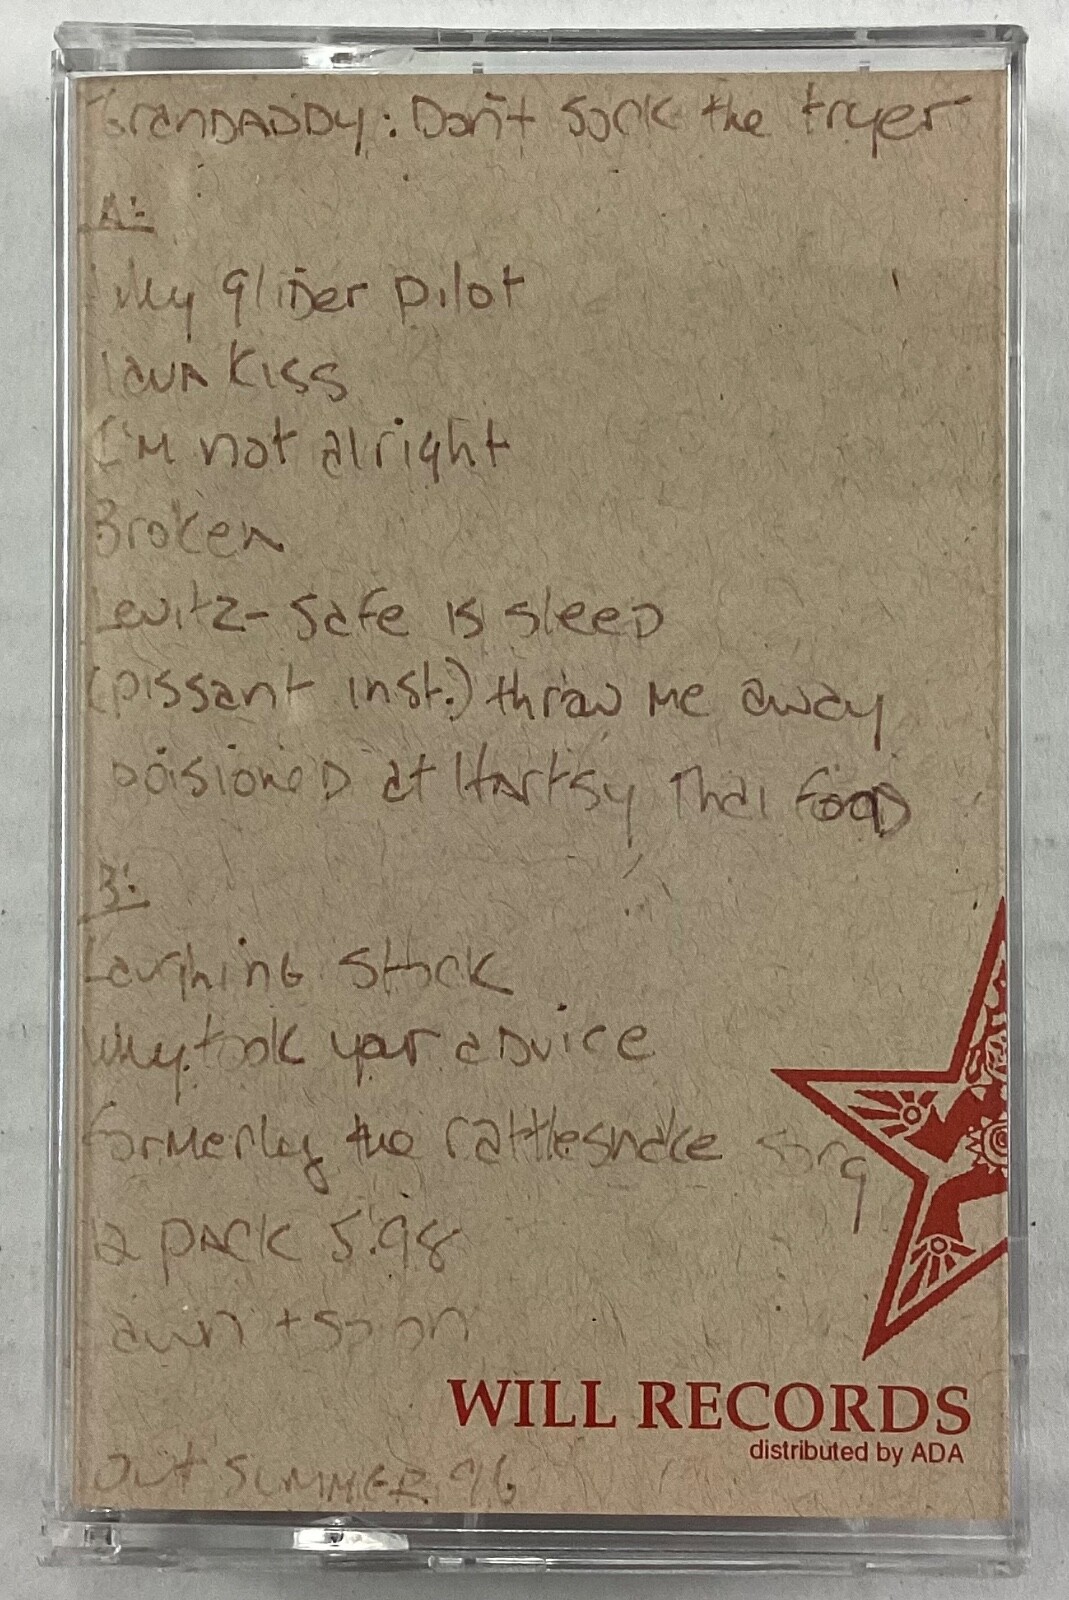 GranDADDy: Don't Sock the tryer
A:
why gliDer pilot
lava Kiss
I'm not alright
Broken
Levitz- safe is sleeD
(pissant inst.) throw me away
poisioneD at Hartsy Thai fooD
B:
Laughing Stock
why took your aDvice
formerley the rattlesnake song
12 pack 5.98
lawn + so on
WILL RECORDS
distributed by ADA
out summer 96